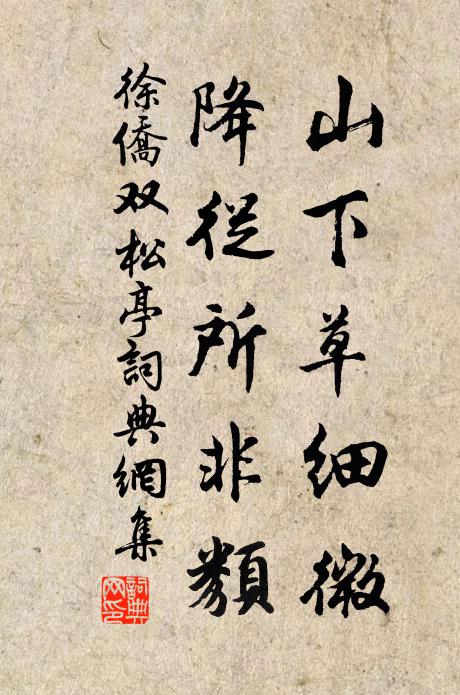 山下草細微
降從所非類
徐僑双松亭詞典網集
詞典
网印